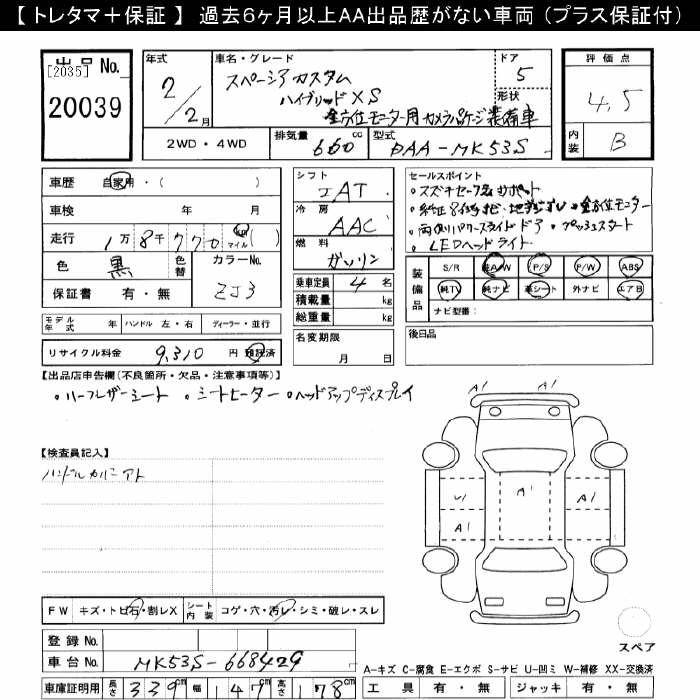 【 トレタマ＋保証 】 過去6ヶ月以上AA出品歴がない車両 (プラス保証付)
出品 No.
[2035]
20039
年式
2/2月
車名・グレード
スペーシアカスタム
ハイブリッドXS
全方位モニター用カメラPKG装備車
ドア
5
形状
評価点
4.5
内装
B
2WD・4WD
排気量
660
cc
型式
DAA-MK53S
車歴 自家用・( )
車検 年 月
走行 1万8千770 km マイル ( )
色 黒
色替
カラーNo.
ZJ3
保証書 有・無
シフト
IAT
冷房
AAC
燃料
ガソリン
乗車定員 4 名
積載量 kg
総重量 kg
セールスポイント
・スズキセーフティサポート
・純正8インチナビ・地デジTV・全方位モニター
・両側パワースライドドア・プッシュスタート
・LEDヘッドライト
装備品
S/R 純A/W P/S P/W ABS
純TV 純ナビ 革シート 外ナビ エアB
ナビ型番:
モデル年式 年 ハンドル 左・右 ディーラー・並行
リサイクル料金 9,310 円 預託済
名変期限
月 日
後日品
【出品店申告欄(不良箇所・欠品・注意事項等)】
・ハーフレザーシート ・シートヒーター ・ヘッドアップディスプレイ
【検査員記入】
A1 A1
U1 A1 A1
A1
FW キズ・トビ石・割レX シート内装 コゲ・穴・汚レ・シミ・破レ・スレ
登録 No.
車台 No. MK53S-668429
スペア
A-キズ C-腐食 E-エクボ S-サビ U-凹ミ W-補修 XX-交換済
車庫証明用 長さ 339cm 幅 147cm 高さ 178cm
工具 有・無 ジャッキ 有・無